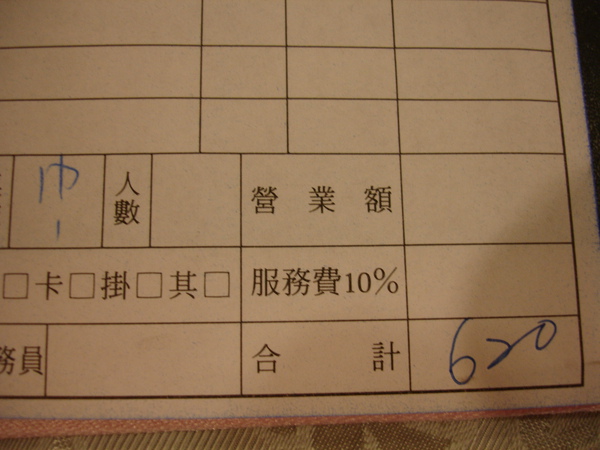 人數
營業額
□卡□掛□其□
服務費10%
務員
合計
620